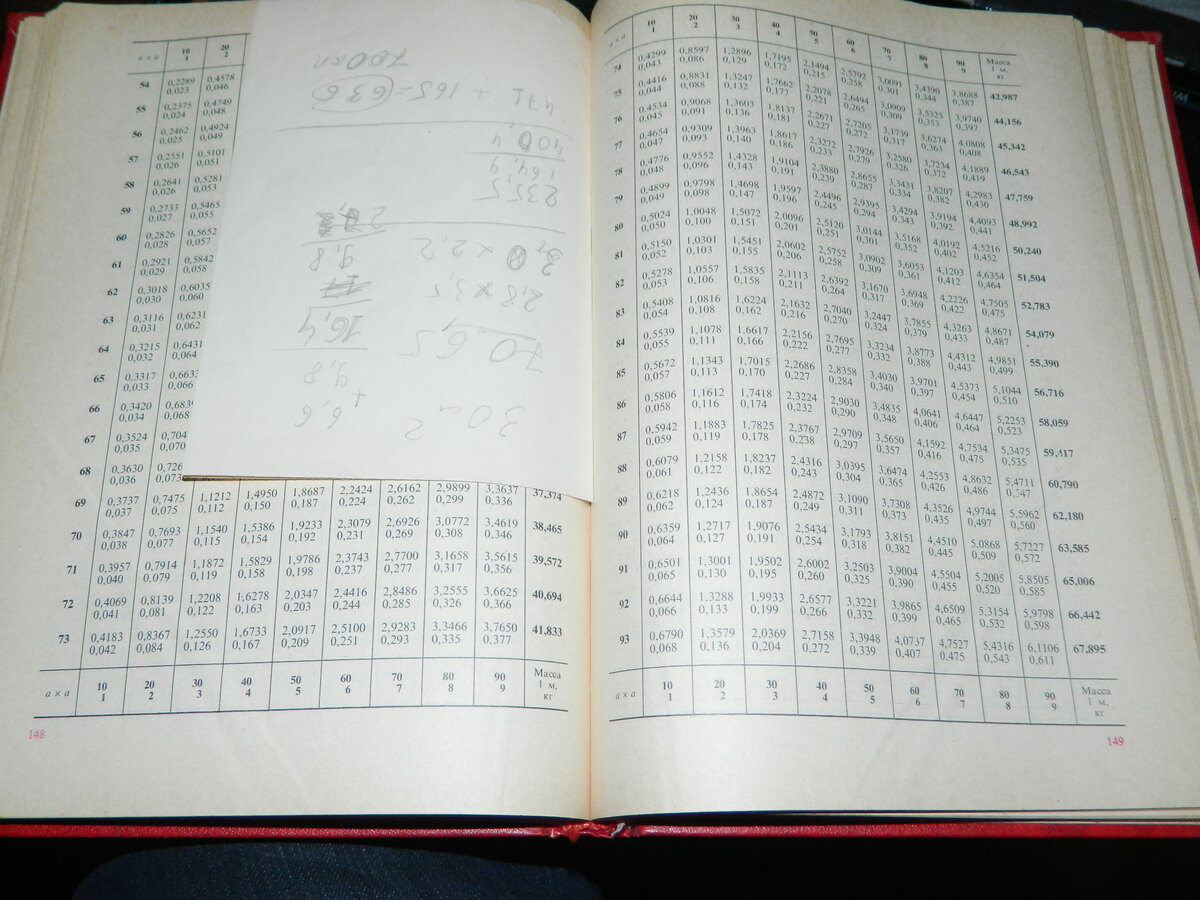 a × a 10 20
1 2
54 0,2289 0,4578
0,023 0,046
55 0,2375 0,4749
0,024 0,048
56 0,2462 0,4924
0,025 0,049
57 0,2551 0,5101
0,026 0,051
58 0,2641 0,5281
0,026 0,053
59 0,2733 0,5465
0,027 0,055
60 0,2826 0,5652
0,028 0,057
61 0,2921 0,5842
0,029 0,058
62 0,3018 0,6035
0,030 0,060
63 0,3116 0,6231
0,031 0,062
64 0,3215 0,6431
0,032 0,064
65 0,3317 0,663
0,033 0,066
66 0,3420 0,683
0,034 0,068
67 0,3524 0,704
0,035 0,070
68 0,3630 0,726
0,036 0,073
69 0,3737 0,7475 1,1212 1,4950 1,8687 2,2424 2,6162 2,9899 3,3637 37,374
0,037 0,075 0,112 0,150 0,187 0,224 0,262 0,299 0,336
70 0,3847 0,7693 1,1540 1,5386 1,9233 2,3079 2,6926 3,0772 3,4619 38,465
0,038 0,077 0,115 0,154 0,192 0,231 0,269 0,308 0,346
71 0,3957 0,7914 1,1872 1,5829 1,9786 2,3743 2,7700 3,1658 3,5615 39,572
0,040 0,079 0,119 0,158 0,198 0,237 0,277 0,317 0,356
72 0,4069 0,8139 1,2208 1,6278 2,0347 2,4416 2,8486 3,2555 3,6625 40,694
0,041 0,081 0,122 0,163 0,203 0,244 0,285 0,326 0,366
73 0,4183 0,8367 1,2550 1,6733 2,0917 2,5100 2,9283 3,3466 3,7650 41,833
0,042 0,084 0,126 0,167 0,209 0,251 0,293 0,335 0,377
a × a 10 20 30 40 50 60 70 80 90 Масса 1 м, кг
1 2 3 4 5 6 7 8 9
148
30 см 2
6,6
+
9,8
16,4
70,65
2,8 × 3,5
9,8
× 2,2
235,5
164,9
400,4
471 + 165 = 636
700
a × a 10 20 30 40 50 60 70 80 90 Масса 1 м, кг
1 2 3 4 5 6 7 8 9
74 0,4299 0,8597 1,2896 1,7195 2,1494 2,5792 3,0091 3,4390 3,8688 42,987
0,043 0,086 0,129 0,172 0,215 0,258 0,301 0,344 0,387
75 0,4416 0,8831 1,3247 1,7662 2,2078 2,6494 3,0909 3,5325 3,9740 44,156
0,044 0,088 0,132 0,177 0,221 0,265 0,309 0,353 0,397
76 0,4534 0,9068 1,3603 1,8137 2,2671 2,7205 3,1739 3,6274 4,0808 45,342
0,045 0,091 0,136 0,181 0,227 0,272 0,317 0,363 0,408
77 0,4654 0,9309 1,3963 1,8617 2,3272 2,7926 3,2580 3,7234 4,1889 46,543
0,047 0,093 0,140 0,186 0,233 0,279 0,326 0,372 0,419
78 0,4776 0,9552 1,4328 1,9104 2,3880 2,8655 3,3431 3,8207 4,2983 47,759
0,048 0,096 0,143 0,191 0,239 0,287 0,334 0,382 0,430
79 0,4899 0,9798 1,4698 1,9597 2,4496 2,9395 3,4294 3,9194 4,4093 48,992
0,049 0,098 0,147 0,196 0,245 0,294 0,343 0,392 0,441
80 0,5024 1,0048 1,5072 2,0096 2,5120 3,0144 3,5168 4,0192 4,5216 50,240
0,050 0,100 0,151 0,201 0,251 0,301 0,352 0,402 0,452
81 0,5150 1,0301 1,5451 2,0602 2,5752 3,0902 3,6053 4,1203 4,6354 51,504
0,052 0,103 0,155 0,206 0,258 0,309 0,361 0,412 0,464
82 0,5278 1,0557 1,5835 2,1113 2,6392 3,1670 3,6948 4,2226 4,7505 52,783
0,053 0,106 0,158 0,211 0,264 0,317 0,369 0,422 0,475
83 0,5408 1,0816 1,6224 2,1632 2,7040 3,2447 3,7855 4,3263 4,8671 54,079
0,054 0,108 0,162 0,216 0,270 0,324 0,379 0,433 0,487
84 0,5539 1,1078 1,6617 2,2156 2,7695 3,3234 3,8773 4,4312 4,9851 55,390
0,055 0,111 0,166 0,222 0,277 0,332 0,388 0,443 0,499
85 0,5672 1,1343 1,7015 2,2686 2,8358 3,4030 3,9701 4,5373 5,1044 56,716
0,057 0,113 0,170 0,227 0,284 0,340 0,397 0,454 0,510
86 0,5806 1,1612 1,7418 2,3224 2,9030 3,4835 4,0641 4,6447 5,2253 58,059
0,058 0,116 0,174 0,232 0,290 0,348 0,406 0,464 0,523
87 0,5942 1,1883 1,7825 2,3767 2,9709 3,5650 4,1592 4,7534 5,3475 59,417
0,059 0,119 0,178 0,238 0,297 0,357 0,416 0,475 0,535
88 0,6079 1,2158 1,8237 2,4316 3,0395 3,6474 4,2553 4,8632 5,4711 60,790
0,061 0,122 0,182 0,243 0,304 0,365 0,426 0,486 0,547
89 0,6218 1,2436 1,8654 2,4872 3,1090 3,7308 4,3526 4,9744 5,5962 62,180
0,062 0,124 0,187 0,249 0,311 0,373 0,435 0,497 0,560
90 0,6359 1,2717 1,9076 2,5434 3,1793 3,8151 4,4510 5,0868 5,7227 63,585
0,064 0,127 0,191 0,254 0,318 0,382 0,445 0,509 0,572
91 0,6501 1,3001 1,9502 2,6002 3,2503 3,9004 4,5504 5,2005 5,8505 65,006
0,065 0,130 0,195 0,260 0,325 0,390 0,455 0,520 0,585
92 0,6644 1,3288 1,9933 2,6577 3,3221 3,9865 4,6509 5,3154 5,9798 66,442
0,066 0,133 0,199 0,266 0,332 0,399 0,465 0,532 0,598
93 0,6790 1,3579 2,0369 2,7158 3,3948 4,0737 4,7527 5,4316 6,1106 67,895
0,068 0,136 0,204 0,272 0,339 0,407 0,475 0,543 0,611
a × a 10 20 30 40 50 60 70 80 90 Масса 1 м, кг
1 2 3 4 5 6 7 8 9
149